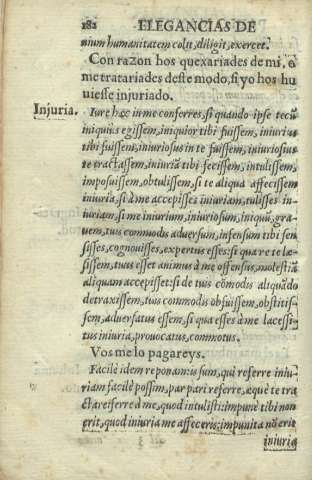 182 ELEGANCIAS DE
nium humanitatem colit, diligit, exercet.
Con razon hos quexariades de mi, o
me tratariades deste modo, si yo hos hu
uiesse injuriado.
Injuria.
Iure hoc in me conferres, si quando ipse tecũ
iniquius egissem, iniquior tibi fuissem, iniurius
tibi fuissem, iniuriosus in te fuissem, iniuriosius
te tractassem, iniuriã tibi fecissem, intulissem,
imposuissem, obtulissem, si te aliqua affecissem
iniuria, si à me accepisses iniuriam, tulisses in-
iuriam, si me iniurium, iniuriosum, iniquũ, gra-
uem, tuis commodis aduersum, infensum tibi sen
sisses, cognouisses, expertus esses: si qua re te læ-
sissem, tuus esset animus à me offensus, molestiã
aliquam accepisset: si de tuis cõmodis aliquãdo
detraxissem, tuis commodis obfuissem, obstitis-
sem, aduersatus essem, si qua esses à me lacessi-
tus iniuria, prouocatus, commotus.
Vos me lo pagareys.
Facilè idem reponam: is sum, qui referre iniu-
riam facilè possim, par pari referre, æquè te tra
ctare: referre à me, quod intulisti: impunè tibi non
erit, quod iniuria me affeceris: impunita nõ erit
iniuria